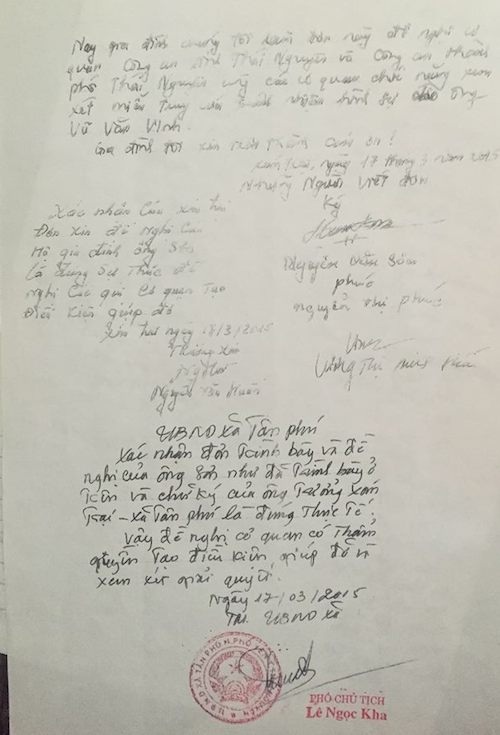 Nay gia đình chúng tôi làm đơn này đề nghị cơ
quan Công an tỉnh Thái Nguyên và Công an thành
phố Thái Nguyên cùng các cơ quan chức năng xem
xét miễn truy cứu trách nhiệm hình sự cho ông
Vũ Văn Vinh.
Gia đình tôi xin chân thành cảm ơn!
ngày 17 tháng 3 năm 2015
Những Người viết đơn
Ký
Nguyễn Văn Sơn
phúc
nguyễn thị phúc
Vương Thị
Xác nhận của xóm
Đơn xin đề nghị của
Hộ gia đình ông Sơn
là đúng sự thực đề
nghị các quí cơ quan tạo
điều kiện giúp đỡ
ngày 18/3/2015
Trưởng xóm
Nguyễn Văn
UBND xã Tân phú
Xác nhận đơn trình bày và đề
nghị của ông Sơn như đã trình bày ở
trên và chữ ký của ông Trưởng xóm
Trại - xã Tân phú là đúng thực tế.
Vậy đề nghị cơ quan có thẩm
quyền tạo điều kiện giúp đỡ và
xem xét giải quyết.
Ngày 17/03/2015
TM. UBND xã
PHÓ CHỦ TỊCH
Lê Ngọc Kha